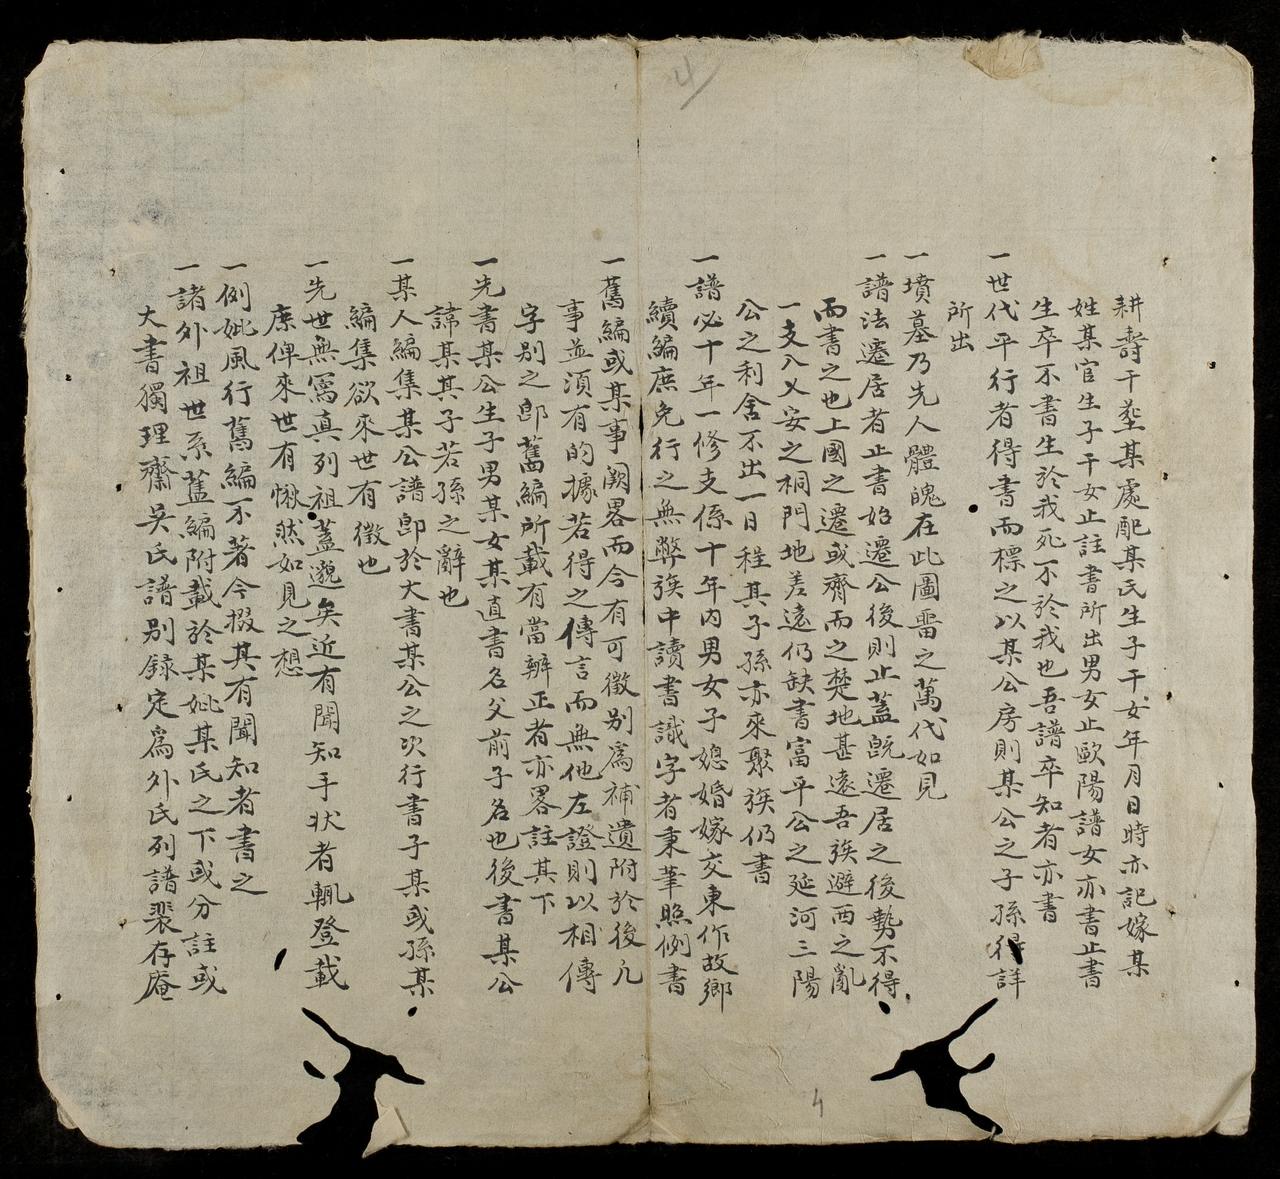 4
耕壽干塟某處配某氏生子干女年月日時亦記嫁某
姓某官生子干女止註書所出男女止歐陽譜女亦書止書
生卒不書生於我死不於我也吾譜卒知者亦書
一世代平行者得書而標之以某公房則某公之子孫得詳
所出
一墳墓乃先人體魄在此圖畱之萬代如見
一譜法遷居者止書始遷公後則止蓋既遷居之後勢不得
而書之也上國之遷或齊而之楚地甚遠吾族避西之亂
一支入乂安之桐門地差遠仍缺書富平公之延河三陽
公之利舍不出一日程其子孫亦來聚族仍書
一譜必十年一修支係十年內男女子媳婚嫁交東作故鄉
續編庶免行之無弊族中讀書識字者秉筆照例書
一舊編或某事闕畧而今有可徵别為補遺附於後凢
事並湏有的據若得之傳言而無他左證則以相傳
字别之即舊編所載有當辨正者亦畧註其下
一先書某公生子男某女某直書名父前子名也後書某公
諱某其子若孫之辭也
一某人編集某公譜即於大書某公之次行書子某或孫某
編集欲來世有徵也
一先世無寫真列祖蓋邈矣近有聞知手状者輒登載
庶俾來世有愀然如見之想
一例妣風行舊編不著今掇其有聞知者書之
一諸外祖世系舊編附載於某妣某氏之下或分註或
大書獨理齋吳氏譜别録定為外氏列譜裴存庵
4